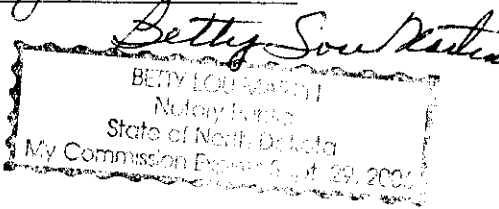 Betty Lou Martin
BETTY LOU
Notary
State of North Dakota
My Commission Expires Sept. 29,